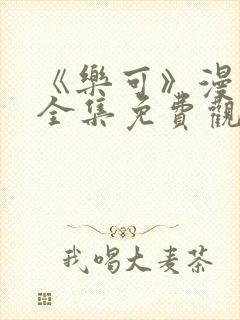 《樂可》漫
全集免費觀
我喝大麦茶